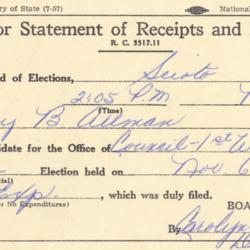 ry of State (7-57) National
or Statement of Receipts and
R. C. 3517.11
d of Elections, Scioto
2:05 P.M.
(Time)
y B Allman
idate for the Office of Council-1st
Election held on Nov 6
Exp. , which was duly filed.
or No Expenditures) BOA
By Carolyn